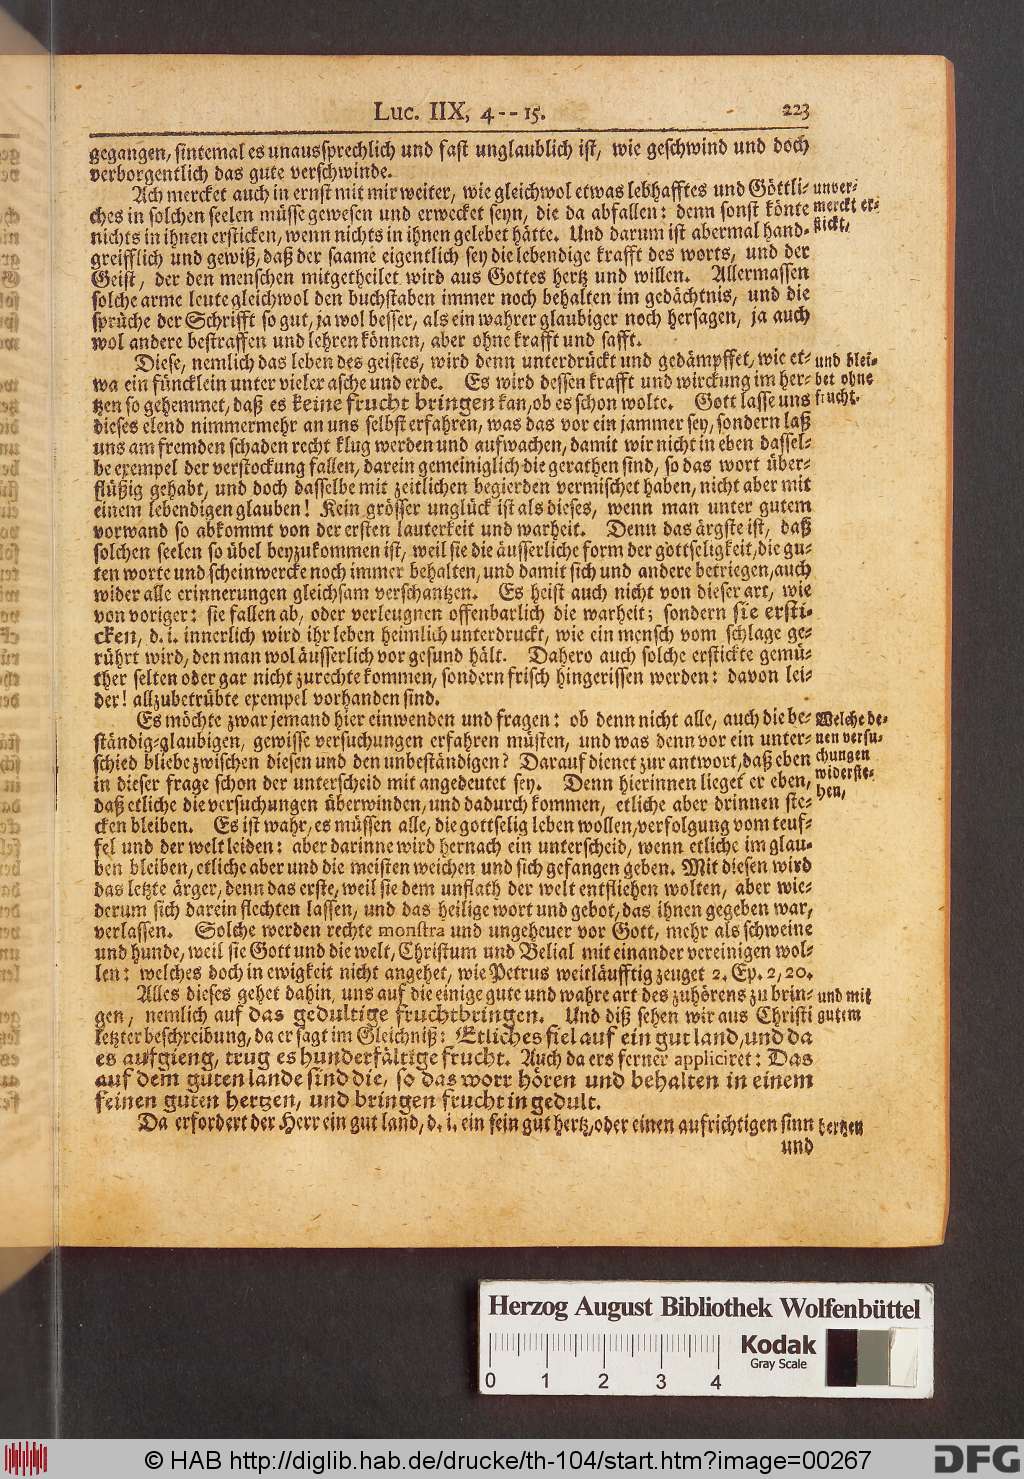 Luc. IIX, 4--15. 223
gegangen, sintemal es unaussprechlich und fast unglaublich ist, wie geschwind und doch
verborgentlich das gute verschwinde.
Ach mercket auch in ernst mit mir weiter, wie gleichwol etwas lebhafftes und Göttli- unver-
ches in solchen seelen müsse gewesen und erwecket seyn, die da abfallen: denn sonst könte merckt er-
nichts in ihnen ersticken, wenn nichts in ihnen gelebet hätte. Und darum ist abermal hand- stickt,
greifflich und gewiß, daß der saame eigentlich sey die lebendige krafft des worts, und der
Geist, der den menschen mitgetheilet wird aus Gottes hertz und willen. Allermassen
solche arme leute gleichwol den buchstaben immer noch behalten im gedächtnis, und die
sprüche der Schrifft so gut, ja wol besser, als ein wahrer glaubiger noch hersagen, ja auch
wol andere bestraffen und lehren können, aber ohne krafft und safft.
Diese, nemlich das leben des geistes, wird denn unterdrückt und gedämpffet, wie et- und blei-
wa ein füncklein unter vieler asche und erde. Es wird dessen krafft und wirckung im her- bet ohne
tzen so gehemmet, daß es keine frucht bringen kan, ob es schon wolte. Gott lasse uns frucht.
dieses elend nimmermehr an uns selbst erfahren, was das vor ein jammer sey, sondern laß
uns am fremden schaden recht klug werden und aufwachen, damit wir nicht in eben dassel-
be exempel der verstockung fallen, darein gemeiniglich die gerathen sind, so das wort über-
flüßig gehabt, und doch dasselbe mit zeitlichen begierden vermischet haben, nicht aber mit
einem lebendigen glauben! Kein grösser unglück ist als dieses, wenn man unter gutem
vorwand so abkommt von der ersten lauterkeit und warheit. Denn das ärgste ist, daß
solchen seelen so übel beyzukommen ist, weil sie die äusserliche form der gottseligkeit, die gu-
ten worte und scheinwercke noch immer behalten, und damit sich und andere betriegen, auch
wider alle erinnerungen gleichsam verschantzen. Es heist auch nicht von dieser art, wie
von voriger: sie fallen ab, oder verleugnen offenbarlich die warheit; sondern sie ersti-
cken, d. i. innerlich wird ihr leben heimlich unterdruckt, wie ein mensch vom schlage ge-
rührt wird, den man wol äusserlich vor gesund hält. Dahero auch solche erstickte gemü-
ther selten oder gar nicht zurechte kommen, sondern frisch hingerissen werden: davon lei-
der! allzubetrübte exempel vorhanden sind.
Es möchte zwar jemand hier einwenden und fragen: ob denn nicht alle, auch die be- Welche de-
ständig-glaubigen, gewisse versuchungen erfahren müsten, und was denn vor ein unter- nen versu-
schied bliebe zwischen diesen und den unbeständigen? Darauf dienet zur antwort, daß eben chungen
in dieser frage schon der unterscheid mit angedeutet sey. Denn hierinnen lieget er eben, widerste-
daß etliche die versuchungen überwinden, und dadurch kommen, etliche aber drinnen ste- hen,
cken bleiben. Es ist wahr, es müssen alle, die gottselig leben wollen, verfolgung vom teuf-
fel und der welt leiden: aber darinne wird hernach ein unterscheid, wenn etliche im glau-
ben bleiben, etliche aber und die meisten weichen und sich gefangen geben. Mit diesen wird
das letzte ärger, denn das erste, weil sie dem unflath der welt entfliehen wolten, aber wie-
derum sich darein flechten lassen, und das heilige wort und gebot, das ihnen gegeben war,
verlassen. Solche werden rechte monstra und ungeheuer vor Gott, mehr als schweine
und hunde, weil sie Gott und die welt, Christum und Belial mit einander vereinigen wol-
len: welches doch in ewigkeit nicht angehet, wie Petrus weitläufftig zeuget 2. Ep. 2, 20.
Alles dieses gehet dahin, uns auf die einige gute und wahre art des zuhörens zu brin- und mit
gen, nemlich auf das gedultige fruchtbringen. Und diß sehen wir aus Christi gutem
letzter beschreibung, da er sagt im Gleichniß: Etliches fiel auf ein gut land, und da
es aufgieng, trug es hunderfältige frucht. Auch da ers ferner appliciret: Das
auf dem guten lande sind die, so das wort hören und behalten in einem
feinen guten hertzen, und bringen frucht in gedult.
Da erfordert der Herr ein gut land, d. i. ein fein gut hertz, oder einen aufrichtigen sinn hertzen
und
Herzog August Bibliothek Wolfenbüttel
Kodak
Gray Scale
0 1 2 3 4
© HAB http://diglib.hab.de/drucke/th-104/start.htm?image=00267
DFG